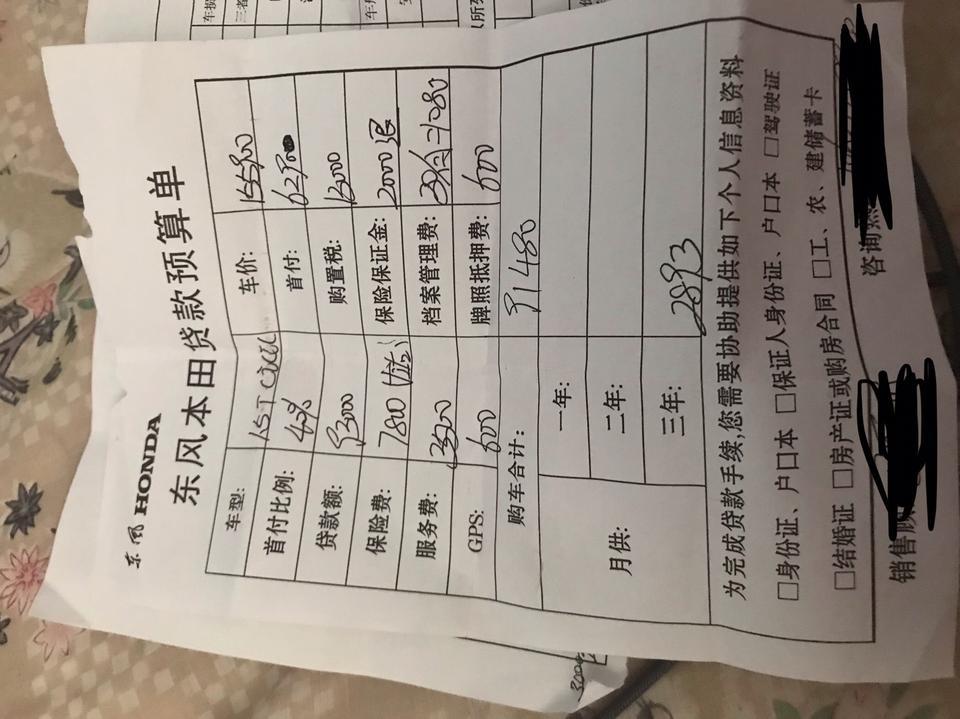 东风 HONDA
东风本田贷款预算单
车型: 1.5T 车价: 155300
首付比例: 4 首付: 62300
贷款额: 93000 购置税: 13000
保险费: 7800 保险保证金: 2000 退
服务费: 档案管理费:
GPS: 600 牌照抵押费: 600
购车合计: 91480
月供: 一年:
二年:
三年: 2893
为完成贷款手续,您需要协助提供如下个人信息资料
□身份证、户口本 □保证人身份证、户口本 □驾驶证
□结婚证 □房产证或购房合同 □工、农、建储蓄卡
销售顾 咨询热
3000